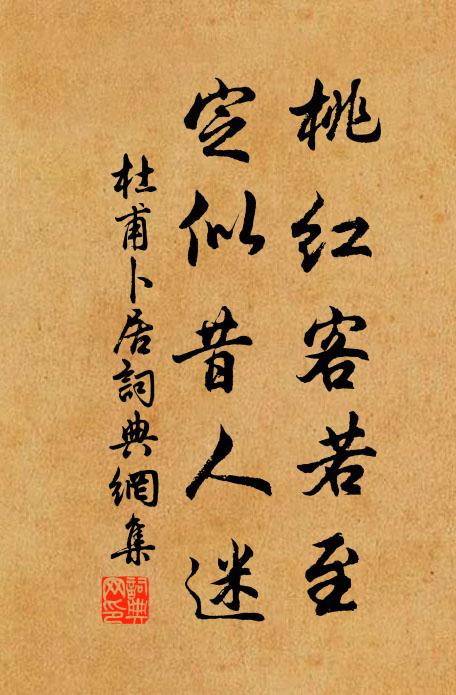 桃红客若至
定似昔人迷
杜甫卜居詞典網集
詞典
网印